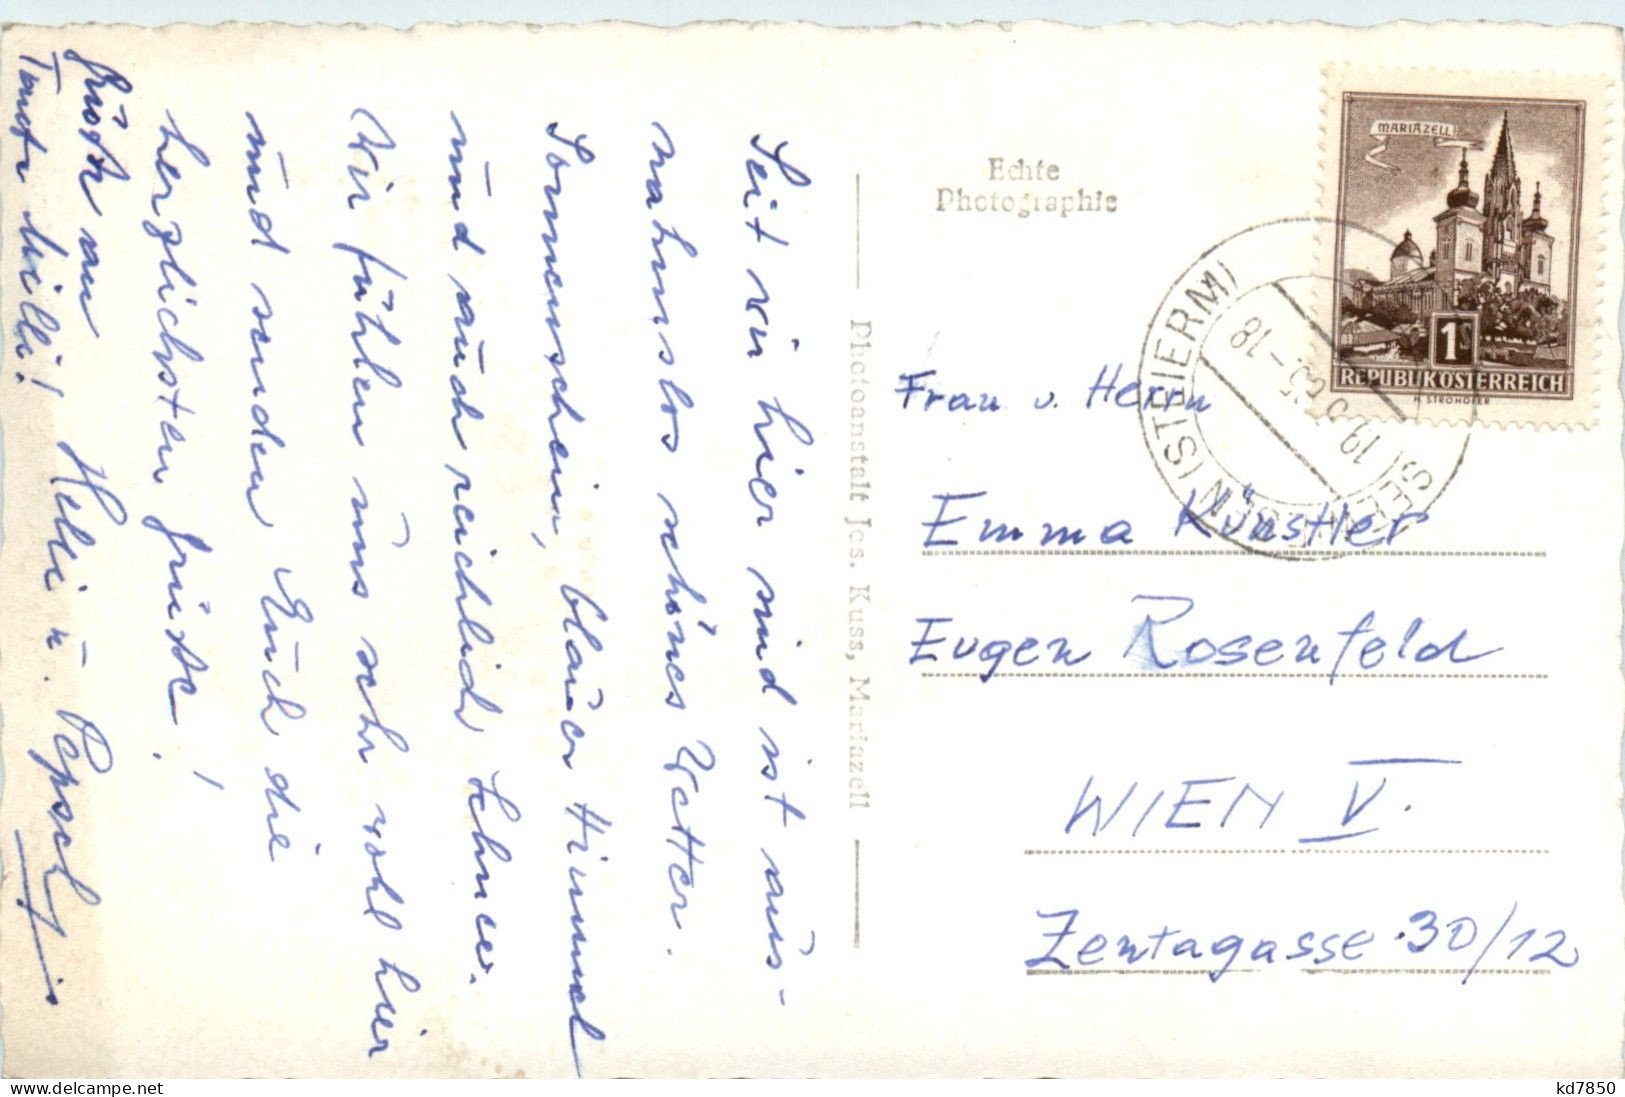 Seit wir hier sind ist aus-
nahmslos schönes Wetter.
Sonnenschein, blauer Himmel
und auch reichlich Schnee.
Wir fühlen uns sehr wohl hier
und senden Euch die
herzlichsten Grüße!
Heli u. Pepschi
Grüße an
Tante Milli!
Echte
Photographie
Photoanstalt Jos. Kuss, Mariazell
MARIAZELL
1S
REPUBLIK ÖSTERREICH
H. STROHOFER
(STEIERM)
-18
Frau u. Herrn
Emma Künstler
Eugen Rosenfeld
WIEN V.
Zentagasse 30/12
delcampe.net
kd7850